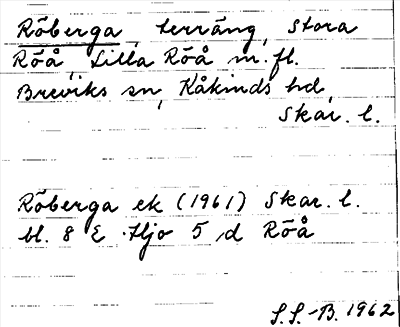 Röberga, terräng, Stora
Röå, Lilla Röå m. fl.
Breviks sn, Kåkinds hd,
Skar. l.
Röberga ek (1961) Skar. l.
bl. 8 E Hjo 5 d Röå
S.S.-B. 1962